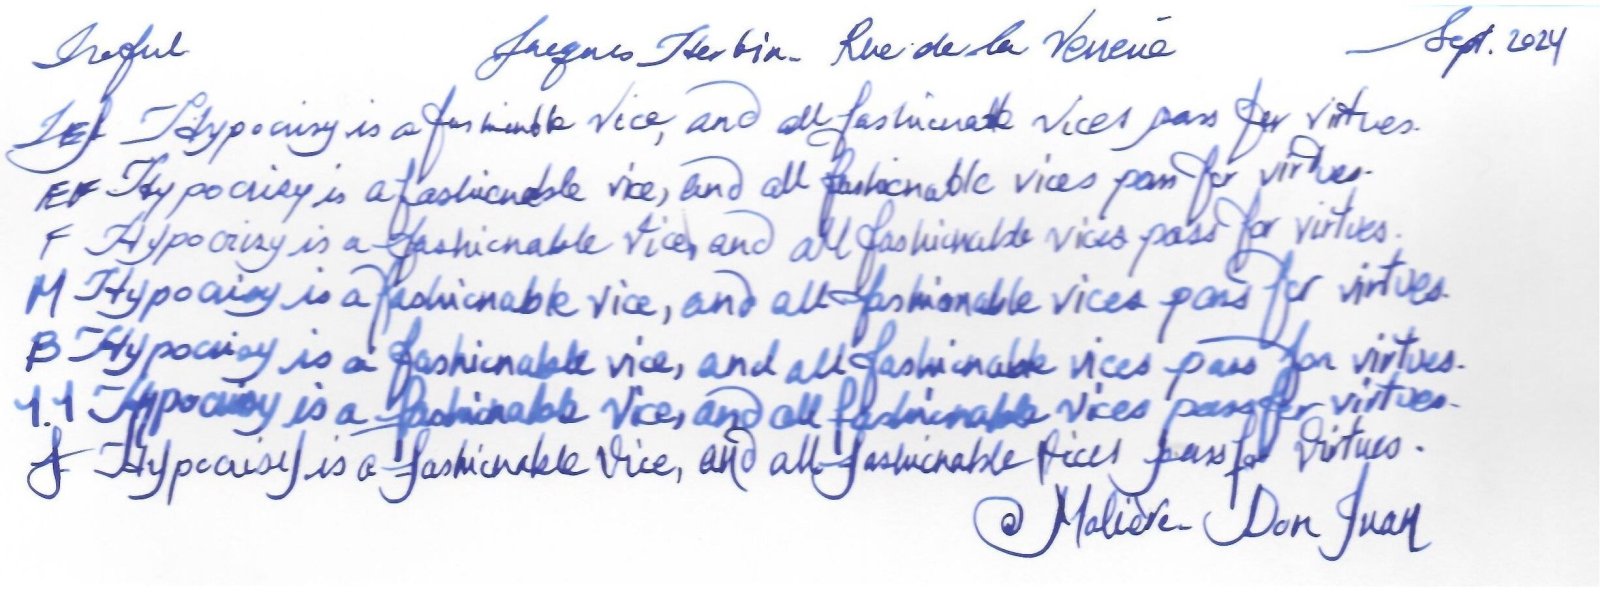 Iroful Jacques Herbin - Rue de la Verrerie Sept. 2024
IEF Hypocrisy is a fashionable vice, and all fashionable vices pass for virtues.
EF Hypocrisy is a fashionable vice, and all fashionable vices pass for virtues.
F Hypocrisy is a fashionable vice, and all fashionable vices pass for virtues.
M Hypocrisy is a fashionable vice, and all fashionable vices pass for virtues.
B Hypocrisy is a fashionable vice, and all fashionable vices pass for virtues.
1.1 Hypocrisy is a fashionable vice, and all fashionable vices pass for virtues.
J Hypocrisy is a fashionable vice, and all fashionable vices pass for virtues.
Molière - Don Juan